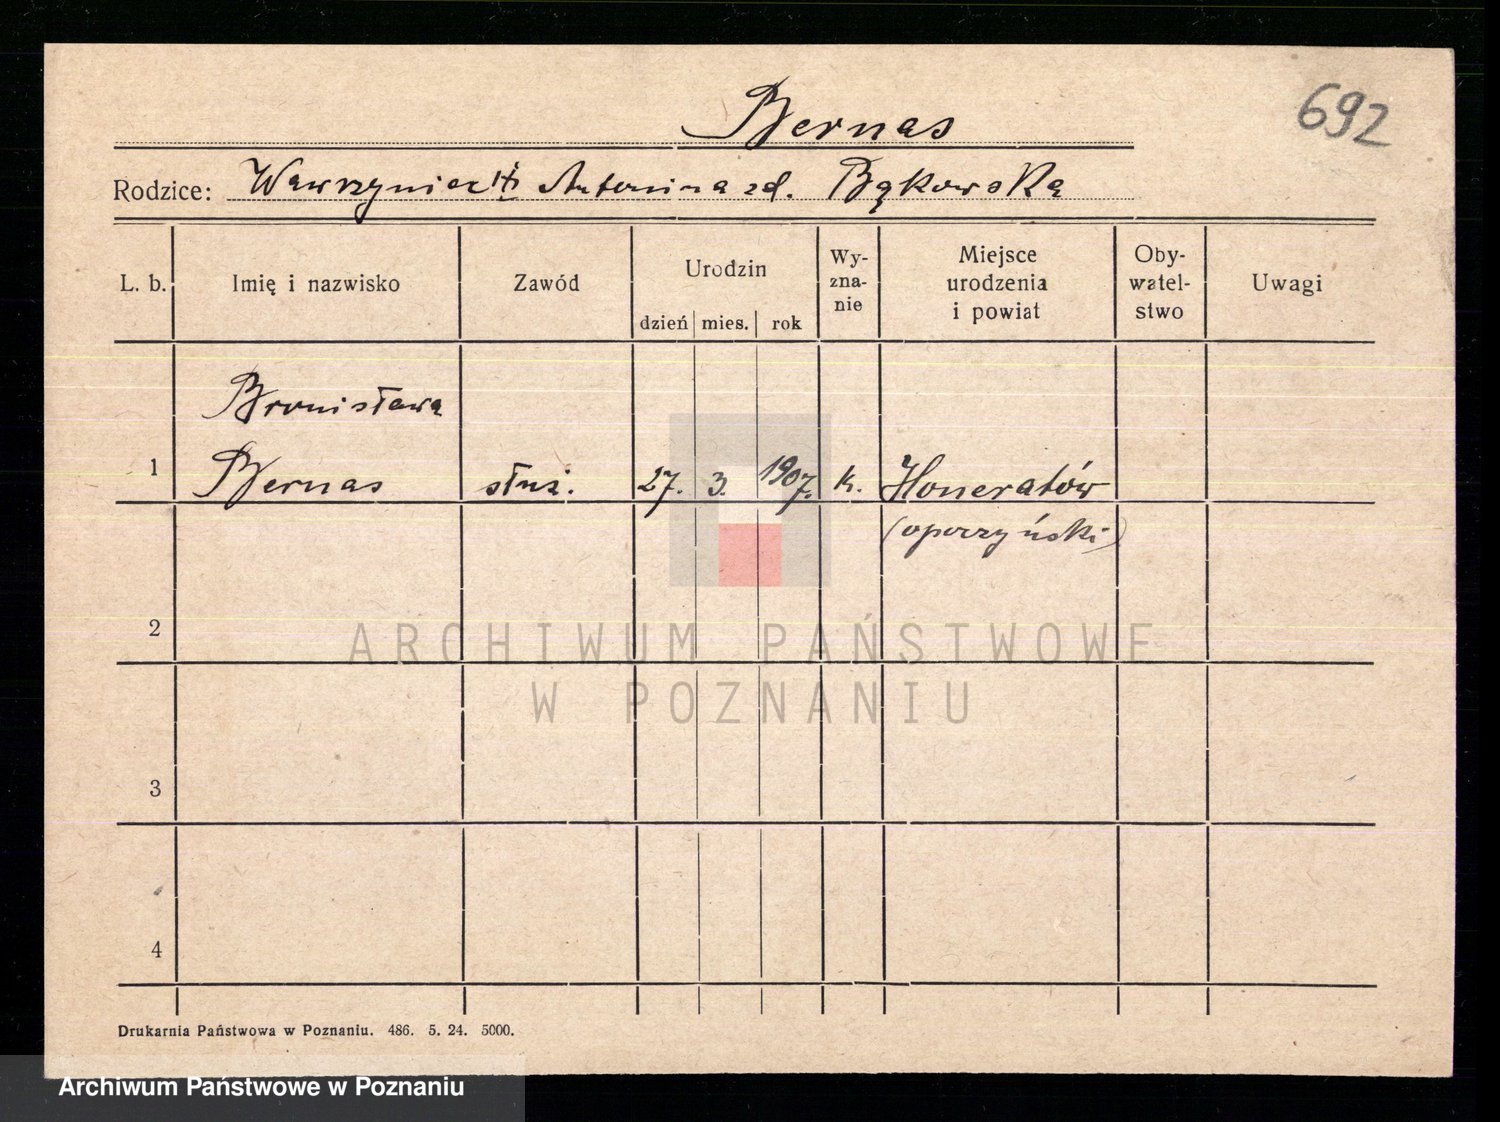 Bernas
692
Rodzice: Wawrzyniec i Antonina zd. Bąkowska
L. b.
Imię i nazwisko
Zawód
Urodzin
dzień
mies.
rok
Wy-
zna-
nie
Miejsce
urodzenia
i powiat
Oby-
watel-
stwo
Uwagi
Bronisława
1
Bernas
służ.
27.
3.
1907.
k.
Honeratów
(opoczyński)
2
ARCHIWUM PAŃSTWOWE
W POZNANIU
3
4
Drukarnia Państwowa w Poznaniu. 486. 5. 24. 5000.
Archiwum Państwowe w Poznaniu